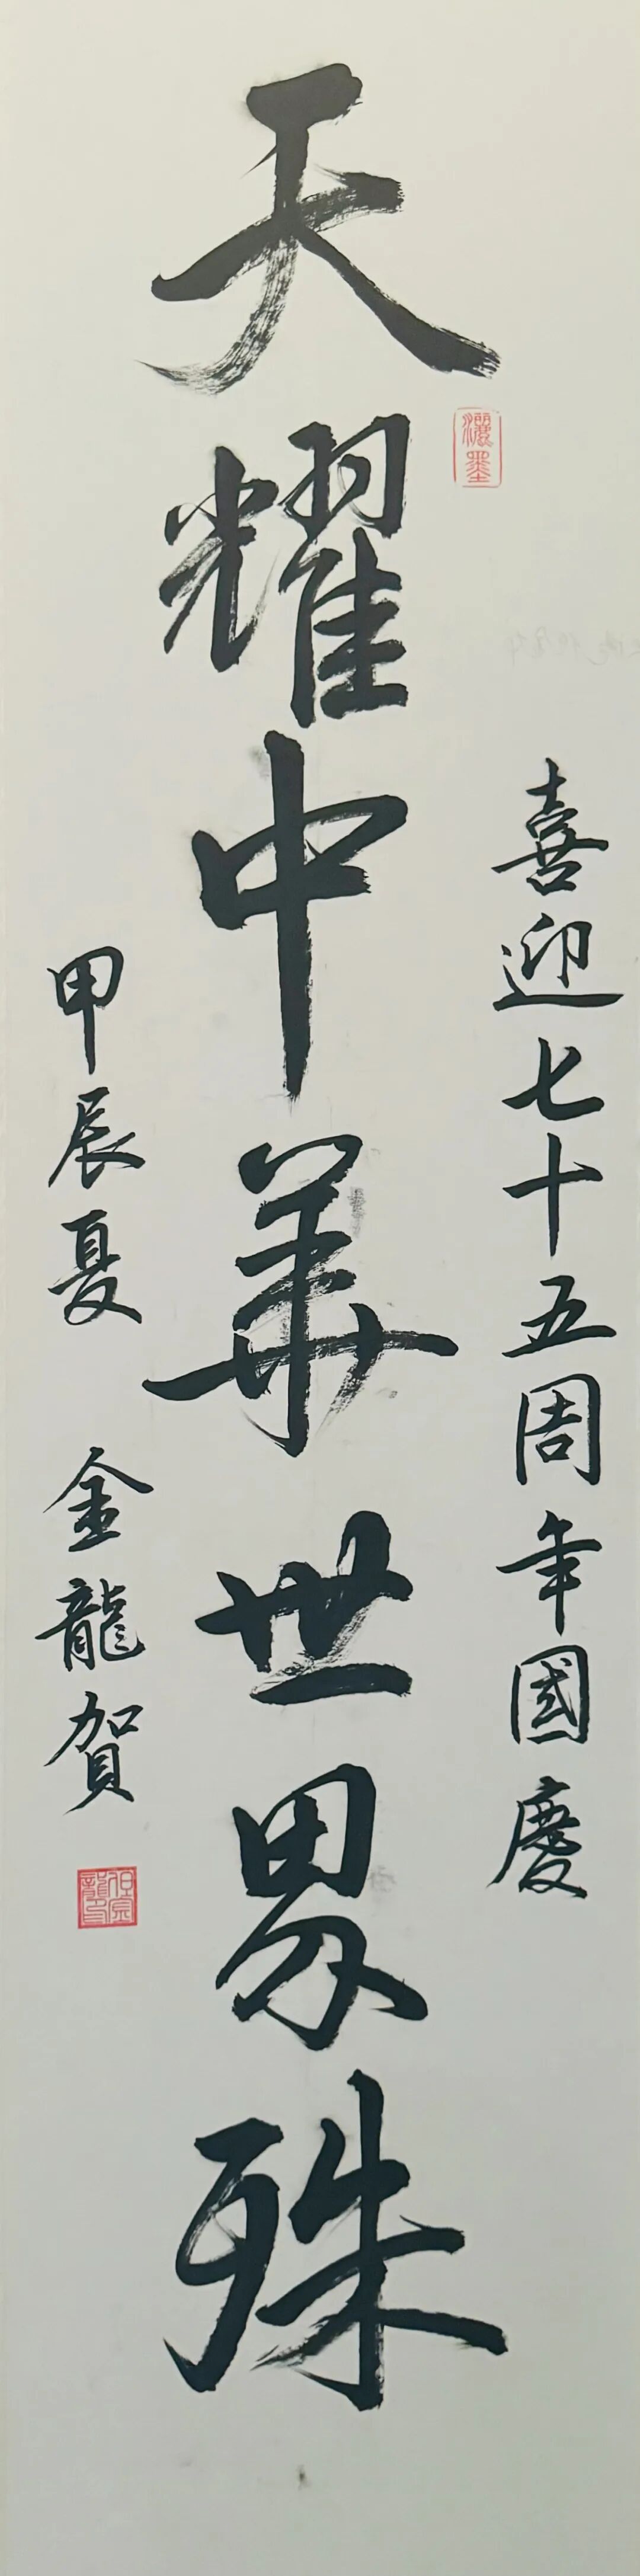 喜迎七十五周年國慶
天耀中華世界殊
甲辰夏 金龍賀